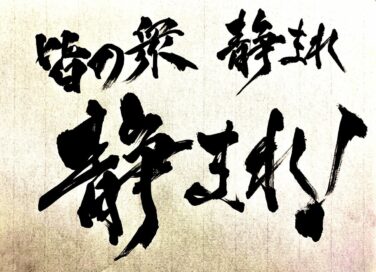 皆の衆 静まれ
静まれ!